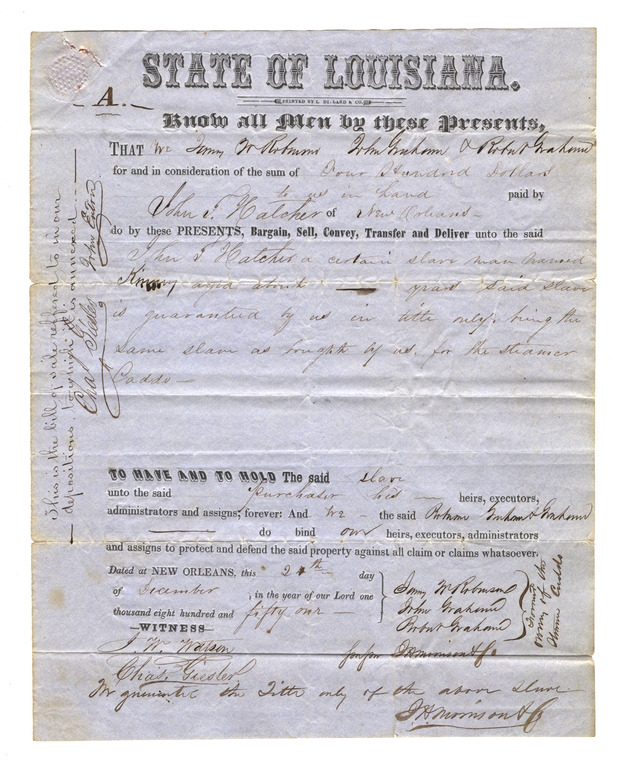 A.
STATE OF LOUISIANA.
PRINTED BY & CO.
Know all Men by these Presents,
THAT We W Robinson John Grahame & Robert Grahame
for and in consideration of the sum of Four Hundred Dollars
to us in hand paid by
John T. Hatcher of New Orleans
do by these PRESENTS, Bargain, Sell, Convey, Transfer and Deliver unto the said
John T Hatcher a certain slave man named
aged about — years said slave
is guaranteed by us in title only, being the
same slave as bought by us, for the steamer
Caddo —
TO HAVE AND TO HOLD The said slave
unto the said purchaser his — heirs, executors,
administrators and assigns; forever: And We — the said Robinson Grahame & Grahame
do bind our heirs, executors, administrators
and assigns to protect and defend the said property against all claim or claims whatsoever.
Dated at NEW ORLEANS, this 24th day
of December, in the year of our Lord one
thousand eight hundred and fifty one —
W Robinson
John Grahame
Robert Grahame
owners of the
Caddo
WITNESS
J. W. Watson
J H Morrison & Co
Chas. Giesler
We guarantee the Title only of the above slave
J. H Morrison & Co
This is the bill of sale referred to in our
depositions, to which it is annexed.
Chas Giesler John Eaton